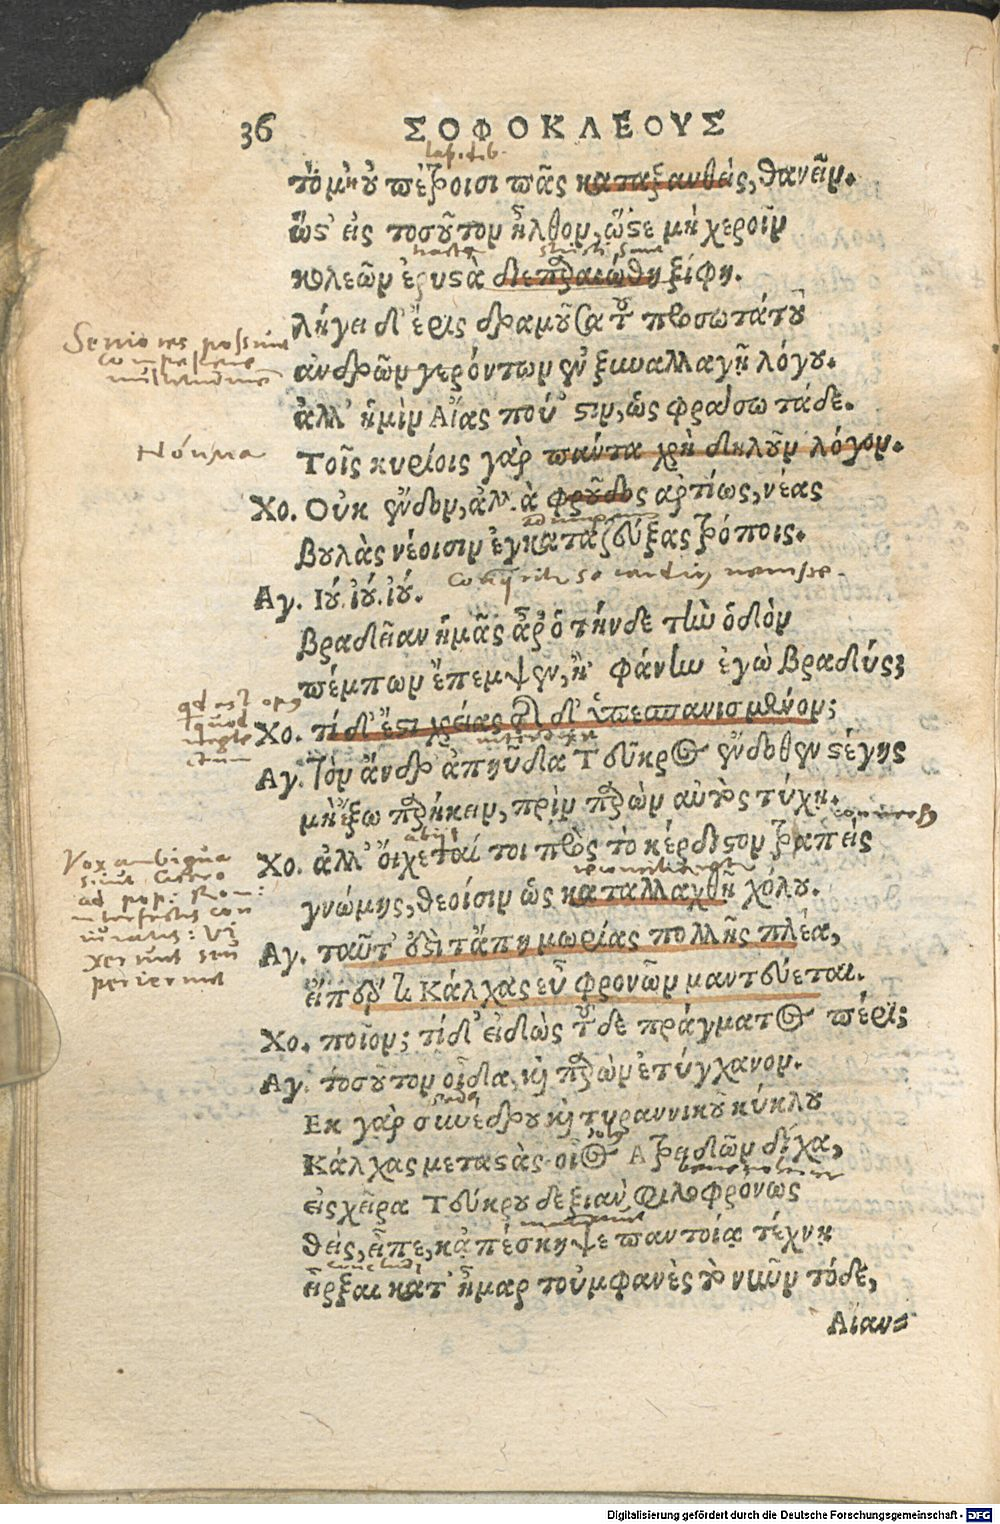 36 ΣΟΦΟΚΛΕΟΥΣ
τὸ μὴ οὐ πέτροισι πᾶς καταξανθεὶς, θανεῖν.
ὥστ' εἰς τοσοῦτον ἦλθον, ὥστε μὴ χεροῖν
κολεῶν ἐρυστὰ διεπεραιώθη ξίφη.
Seniores possunt
λήγει δ' ἔρις δραμοῦσα τοῦ προσωτάτου
ἀνδρῶν γερόντων ἐν ξυναλλαγῇ λόγου.
ἀλλ' ἡμῖν Αἴας ποῦ 'στιν, ὡς φράσω τάδε.
τοῖς κυρίοις γὰρ πάντα χρὴ δηλοῦν λόγον.
Χο. Οὐκ ἔνδον, ἀλλὰ φροῦδος ἀρτίως, νέας
βουλὰς νέοισιν ἐγκαταζεύξας τρόποις.
Αγ. Ἰού. ἰού. ἰού.
βραδεῖαν ἡμᾶς ἆρ' ὁ τήνδε τὴν ὁδὸν
πέμπων ἔπεμψεν, ἢ 'φάνην ἐγὼ βραδύς;
Χο. τί δ' ἔστι χρείας τῆσδ' ὑπεσπανισμένον;
Αγ. Τὸν ἄνδρ' ἀπηύδα Τεῦκρος ἔνδοθεν στέγης
μὴ 'ξω παρήκειν, πρὶν παρὼν αὐτὸς τύχῃ.
Χο. ἀλλ' οἴχεταί τοι πρὸς τὸ κέρδιστον τραπεὶς
Vox ambigua
sicut Cicero
ad pop. Rom:
γνώμης, θεοῖσιν ὡς καταλλαχθῇ χόλου.
Αγ. ταῦτ' ἐστὶ τἄπη μωρίας πολλῆς πλέα,
εἴπερ τι Κάλχας εὖ φρονῶν μαντεύεται.
Χο. ποῖον; τί δ' εἰδὼς τοῦδε πράγματος πέρι;
Αγ. τοσοῦτον οἶδα, καὶ παρὼν ἐτύγχανον.
Εκ γὰρ συνέδρου καὶ τυραννικοῦ κύκλου
Κάλχας μεταστὰς οἶος Ατρειδῶν δίχα,
εἰς χεῖρα Τεύκρου δεξιὰν φιλοφρόνως
θεὶς, εἶπε, κἀπέσκηψε παντοίᾳ τέχνῃ
εἷρξαι κατ' ἦμαρ τοὐμφανὲς τὸ νῦν τόδε,
Αἴαν=
Digitalisierung gefördert durch die Deutsche Forschungsgemeinschaft - DFG